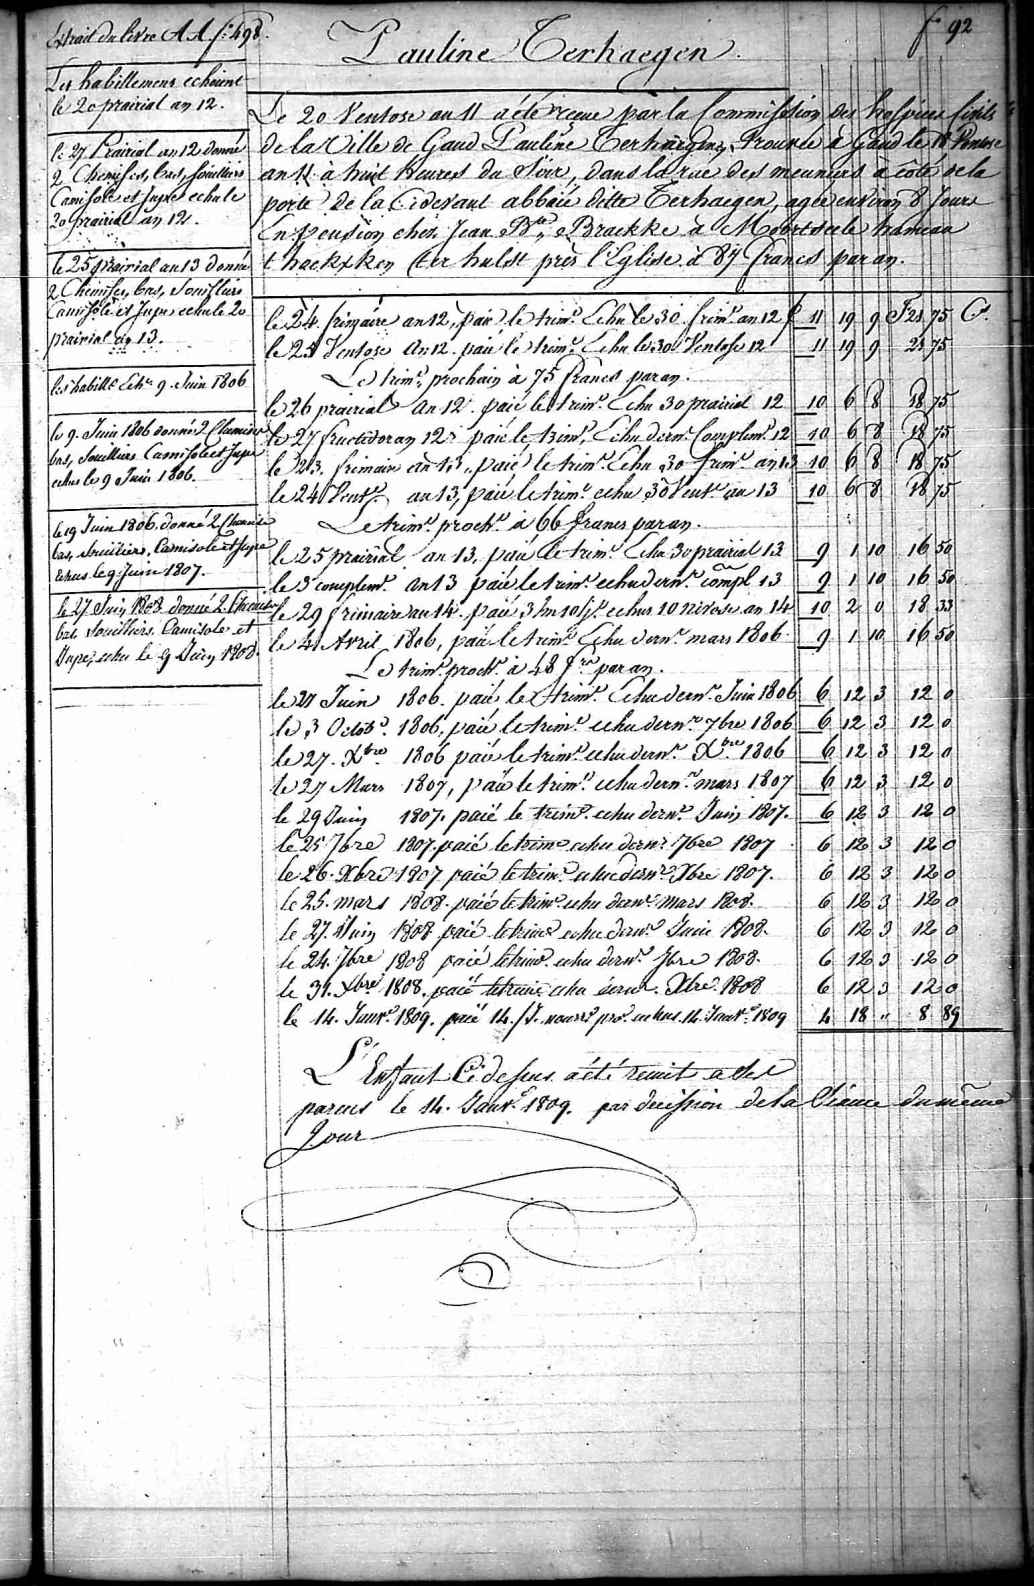 Extrait du livre A A f.° 498.
f° 92
Pauline Terhaegen.
Les habillemens echoient
le 20 prairial an 12.
le 27 Prairial an 12 donné
2 Chemises, bas, souilliers
Camisole et Jupe echu le
20 prairial an 12.
le 25 prairial an 13 donné
2 Chemises, bas, souilliers
Camisole et Jupe echu le 20
prairial an 13.
les habill.s Echu 9. Juin 1806
le 9. Juin 1806 donné 2 Chemises
bas, souilliers Camisole et Jupe
echus le 9 Juin 1806.
le 19 Juin 1806. donné 2 Chemise
bas, souilliers, Camisole et Jupe
Echus le 9. Juin 1807.
le 27 Juin 1808 donné 2 Chemises
bas souilliers. Camisole et
Jupe, echu le 9 Juin 1808.
Le 20 Ventose an 11 a été recue par la Commission des hospices civils
de la Ville de Gand Pauline Terhaegen, Trouvée à Gand le 18 Ventose
an 11 à huit Heures du Soir, dans la rue des meuniers a coté de la
porte de la Cidevant abbaïe ditte Terhaegen, agée environ 8 Jours
En pension chez Jean B.te Braekke à Moortseele hameau
t haekxken ter hulst près l'Eglise à 87 francs par an.
le 24. frimaire an 12, paié le trim.e Echu le 30. frim.e an 12 £ 11 19 9 F 21 75 C.s
le 23 Ventose An 12. paié le trim.e Echu le 30 Ventose 12 11 19 9 21 75
Le trim.e prochain à 75 francs par an.
le 26 prairial An 12. paié le trim.e Echu 30 prairial 12 10 6 8 18 75
le 27 fructidor an 12. paié le trim.e Echu dern.r Complem.e 12 10 6 8 18 75
le 23. frimaire an 13., paié le trim.e Echu 30 frim.e an 13 10 6 8 18 75
le 24 Vent.e an 13, paié le trim.e echu 30 Vent.e an 13 10 6 8 18 75
Le trim.e proch.n à 66 francs par an.
le 25 prairial an 13, paié le trim.e Echu 30 prairial 13 9 1 10 16 50
le 3 complem.e an 13 paié le trim.e echu dern.r compl 13 9 1 10 16 50
le 29 frimaire an 14. paié 3 m 10 j.s echus 10 nivose an 14 10 2 0 18 33
le 4. Avril 1806, paié le trim.e Echu dern.r mars 1806. 9 1 10 16 50
Le trim.e proch.n à 48 f.rs par an.
le 21 Juin 1806. paié le trim.e Echu dern.r Juin 1806 6 12 3 12 0
le 3 Octob.e 1806, paié le trim.e echu dern.r 7bre 1806 6 12 3 12 0
le 27. Xbre 1806 paié le trim.e echu dern.r Xbre 1806 6 12 3 12 0
le 27 Mars 1807, paié le trim.e echu dern.r mars 1807 6 12 3 12 0
le 29 Juin 1807. paié le trim.e echu dern.r Juin 1807. 6 12 3 12 0
le 25 7bre 1807. paié le trime echu dern.r 7bre 1807 6 12 3 12 0
le 26. Xbre 1807 paié le trim.e echu dern.r Xbre 1807. 6 12 3 12 0
le 25. mars 1808. paié le trim.e echu dern.r mars 1808. 6 12 3 12 0
le 27. Juin 1808 paié le trime echu dern.r Juin 1808. 6 12 3 12 0
le 24. 7bre 1808 paié le trim.e echu dern.r 7bre 1808. 6 12 3 12 0
le 31. Xbre 1808. paié le trim.e echu dern.r Xbre. 1808 6 12 3 12 0
le 14. Janv.r 1809. paié 14. J. nourr.e echus 14. Janv.r 1809 4 18 " 8 89
L'Enfant Ci dessus a été remit a ses
parens le 14. Janv.r 1809. par decission de la Séance du même
Jour